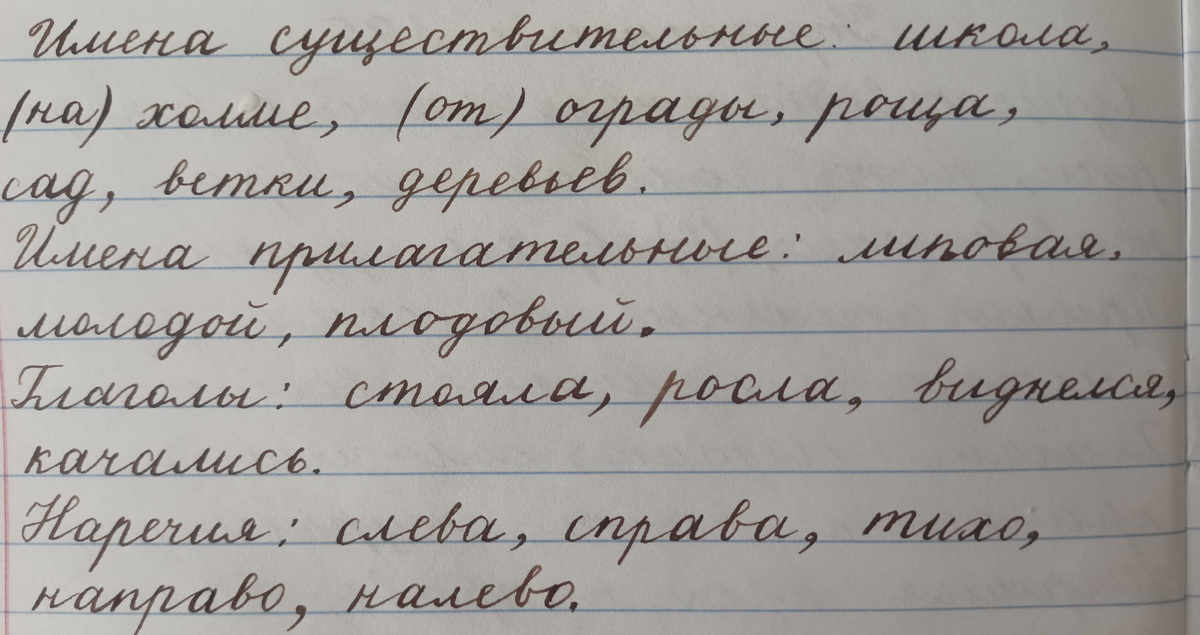 Имена существительные: школа,
(на) холме, (от) ограды, роща,
сад, ветки, деревьев.
Имена прилагательные: липовая,
молодой, плодовый.
Глаголы: стояла, росла, виднелся,
качались.
Наречия: слева, справа, тихо,
направо, налево.